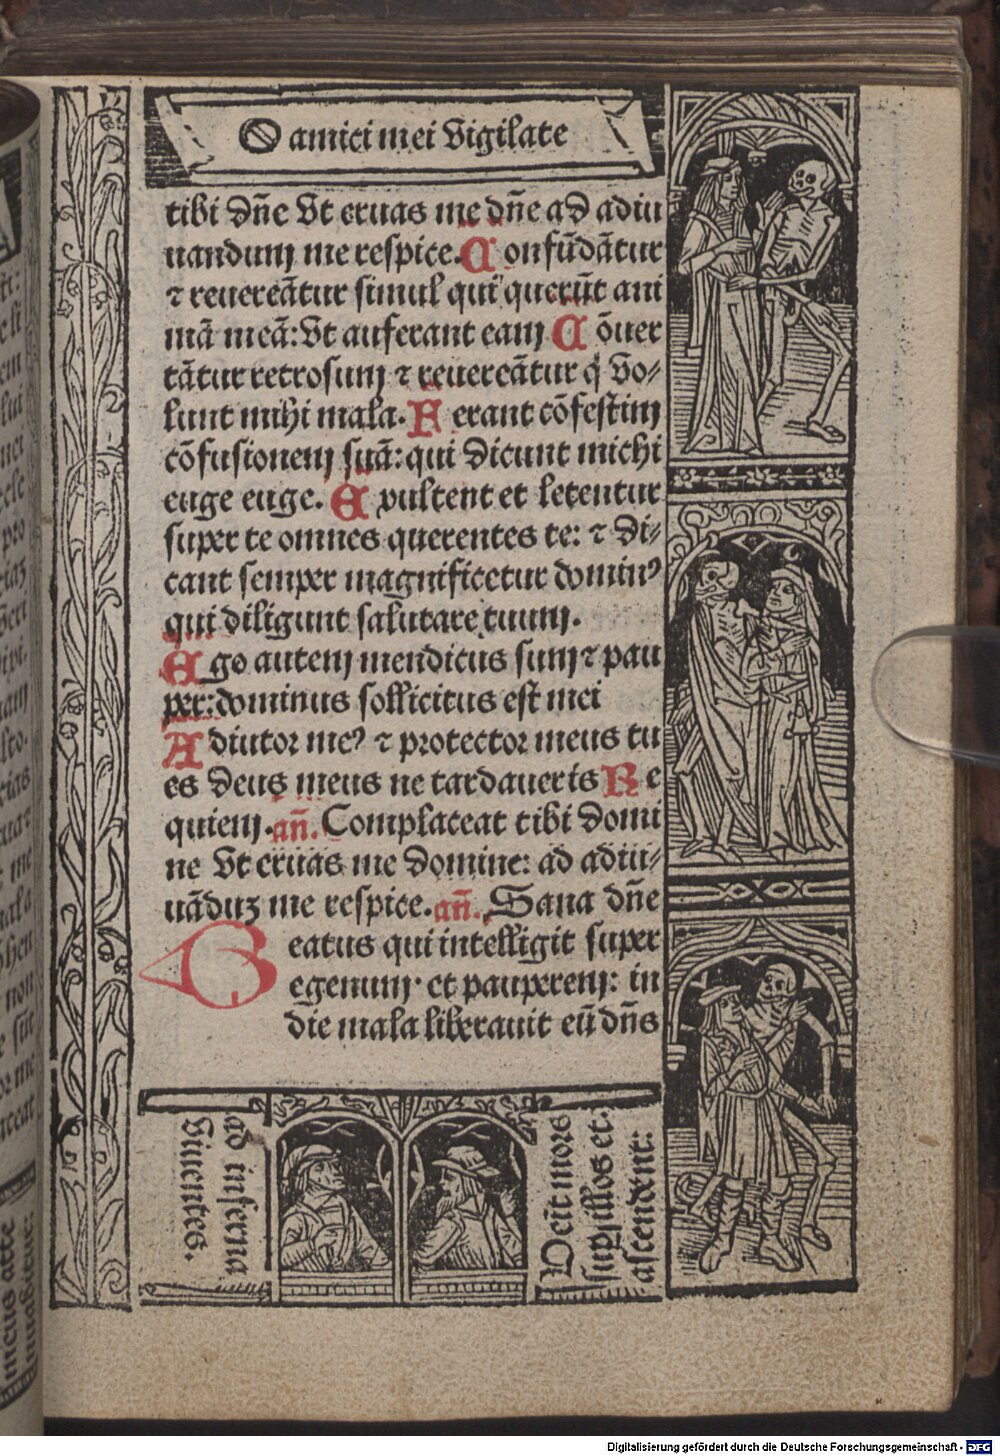 O amici mei vigilate
tibi dñe vt eruas me dñe ad adiu
uandum me respice. Confũdãtur
⁊ reuereãtur simul qui querũt ani
mã meã: vt auferant eam Cõuer
tãtur retrosum ⁊ reuereãtur q̃ vo⸗
lunt mihi mala. Ferant cõfestim
cõfusionem suã: qui dicunt michi
euge euge. Expultent et letentur
super te omnes querentes te: ⁊ di⸗
cant semper magnificetur dominꝰ
qui diligunt salutare tuum.
Ego autem mendicus sum ⁊ pau
per: dominus sollicitus est mei
Adiutor meꝰ ⁊ protector meus tu
es deus meus ne tardaueris Re
quiem. añ. Complaceat tibi domi
ne vt eruas me domine: ad adiu⸗
uãduz me respice. añ. Sana dñe
Beatus qui intelligit super
egenum· et pauperem: in
die mala liberauit eũ dñs
ad inferna
viuentes.
Ueĩt mors
sup̃ illos et.
ascendent:
Digitalisierung gefördert durch die Deutsche Forschungsgemeinschaft - DFG